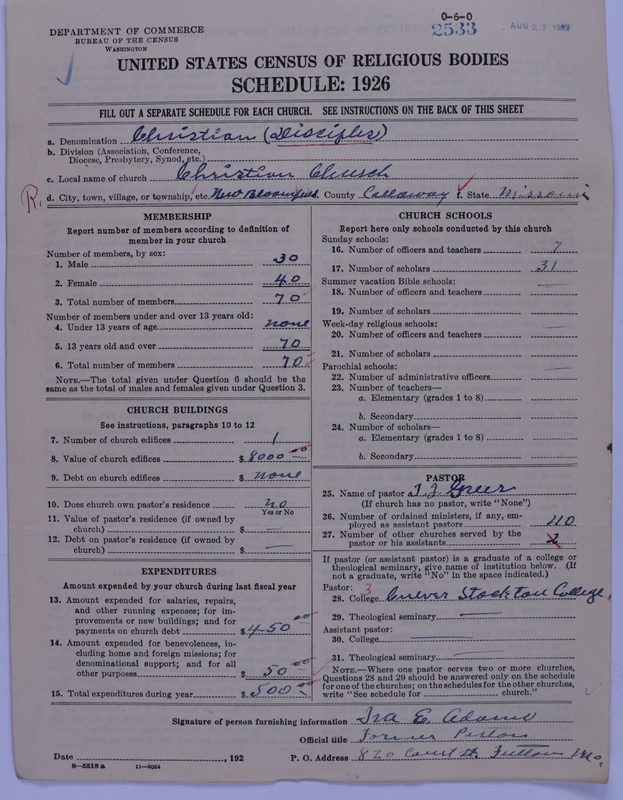 0-6-0
DEPARTMENT OF COMMERCE
BUREAU OF THE CENSUS
WASHINGTON
2533
AUG 27 1927
UNITED STATES CENSUS OF RELIGIOUS BODIES
SCHEDULE: 1926
FILL OUT A SEPARATE SCHEDULE FOR EACH CHURCH. SEE INSTRUCTIONS ON THE BACK OF THIS SHEET
a. Denomination Christian (Disciples)
b. Division (Association, Conference, Diocese, Presbytery, Synod, etc.)
c. Local name of church Christian Church
R. d. City, town, village, or township, etc. New Bloomfield County Callaway f. State Missouri
MEMBERSHIP
Report number of members according to definition of member in your church
Number of members, by sex:
1. Male 30
2. Female 40
3. Total number of members 70
Number of members under and over 13 years old:
4. Under 13 years of age none
5. 13 years old and over 70
6. Total number of members 70
NOTE.—The total given under Question 6 should be the same as the total of males and females given under Question 3.
CHURCH BUILDINGS
See instructions, paragraphs 10 to 12
7. Number of church edifices 1
8. Value of church edifices $ 8000 00
9. Debt on church edifices $ none
10. Does church own pastor's residence no
Yes or No
11. Value of pastor's residence (if owned by church) $ —
12. Debt on pastor's residence (if owned by church) $ —
EXPENDITURES
Amount expended by your church during last fiscal year
13. Amount expended for salaries, repairs, and other running expenses; for improvements or new buildings; and for payments on church debt $ 450 00
14. Amount expended for benevolences, including home and foreign missions; for denominational support; and for all other purposes $ 50 00
15. Total expenditures during year $ 500 00
CHURCH SCHOOLS
Report here only schools conducted by this church
Sunday schools:
16. Number of officers and teachers 7
17. Number of scholars 31
Summer vacation Bible schools:
18. Number of officers and teachers
19. Number of scholars
Week-day religious schools:
20. Number of officers and teachers
21. Number of scholars
Parochial schools:
22. Number of administrative officers
23. Number of teachers—
a. Elementary (grades 1 to 8)
b. Secondary
24. Number of scholars—
a. Elementary (grades 1 to 8)
b. Secondary
PASTOR
25. Name of pastor T. J. Greer
(If church has no pastor, write "None")
26. Number of ordained ministers, if any, employed as assistant pastors no
27. Number of other churches served by the pastor or his assistants 2
If pastor (or assistant pastor) is a graduate of a college or theological seminary, give name of institution below. (If not a graduate, write "No" in the space indicated.)
Pastor: 3
28. College Culver Stockton College
29. Theological seminary
Assistant pastor:
30. College
31. Theological seminary
NOTE.—Where one pastor serves two or more churches, Questions 28 and 29 should be answered only on the schedule for one of the churches; on the schedules for the other churches, write "See schedule for ______ church."
Signature of person furnishing information Ira E. Adams
Official title Former Pastor
Date ______, 192 P. O. Address 820 Court St. Fulton Mo.
6-5518 a 11-9064